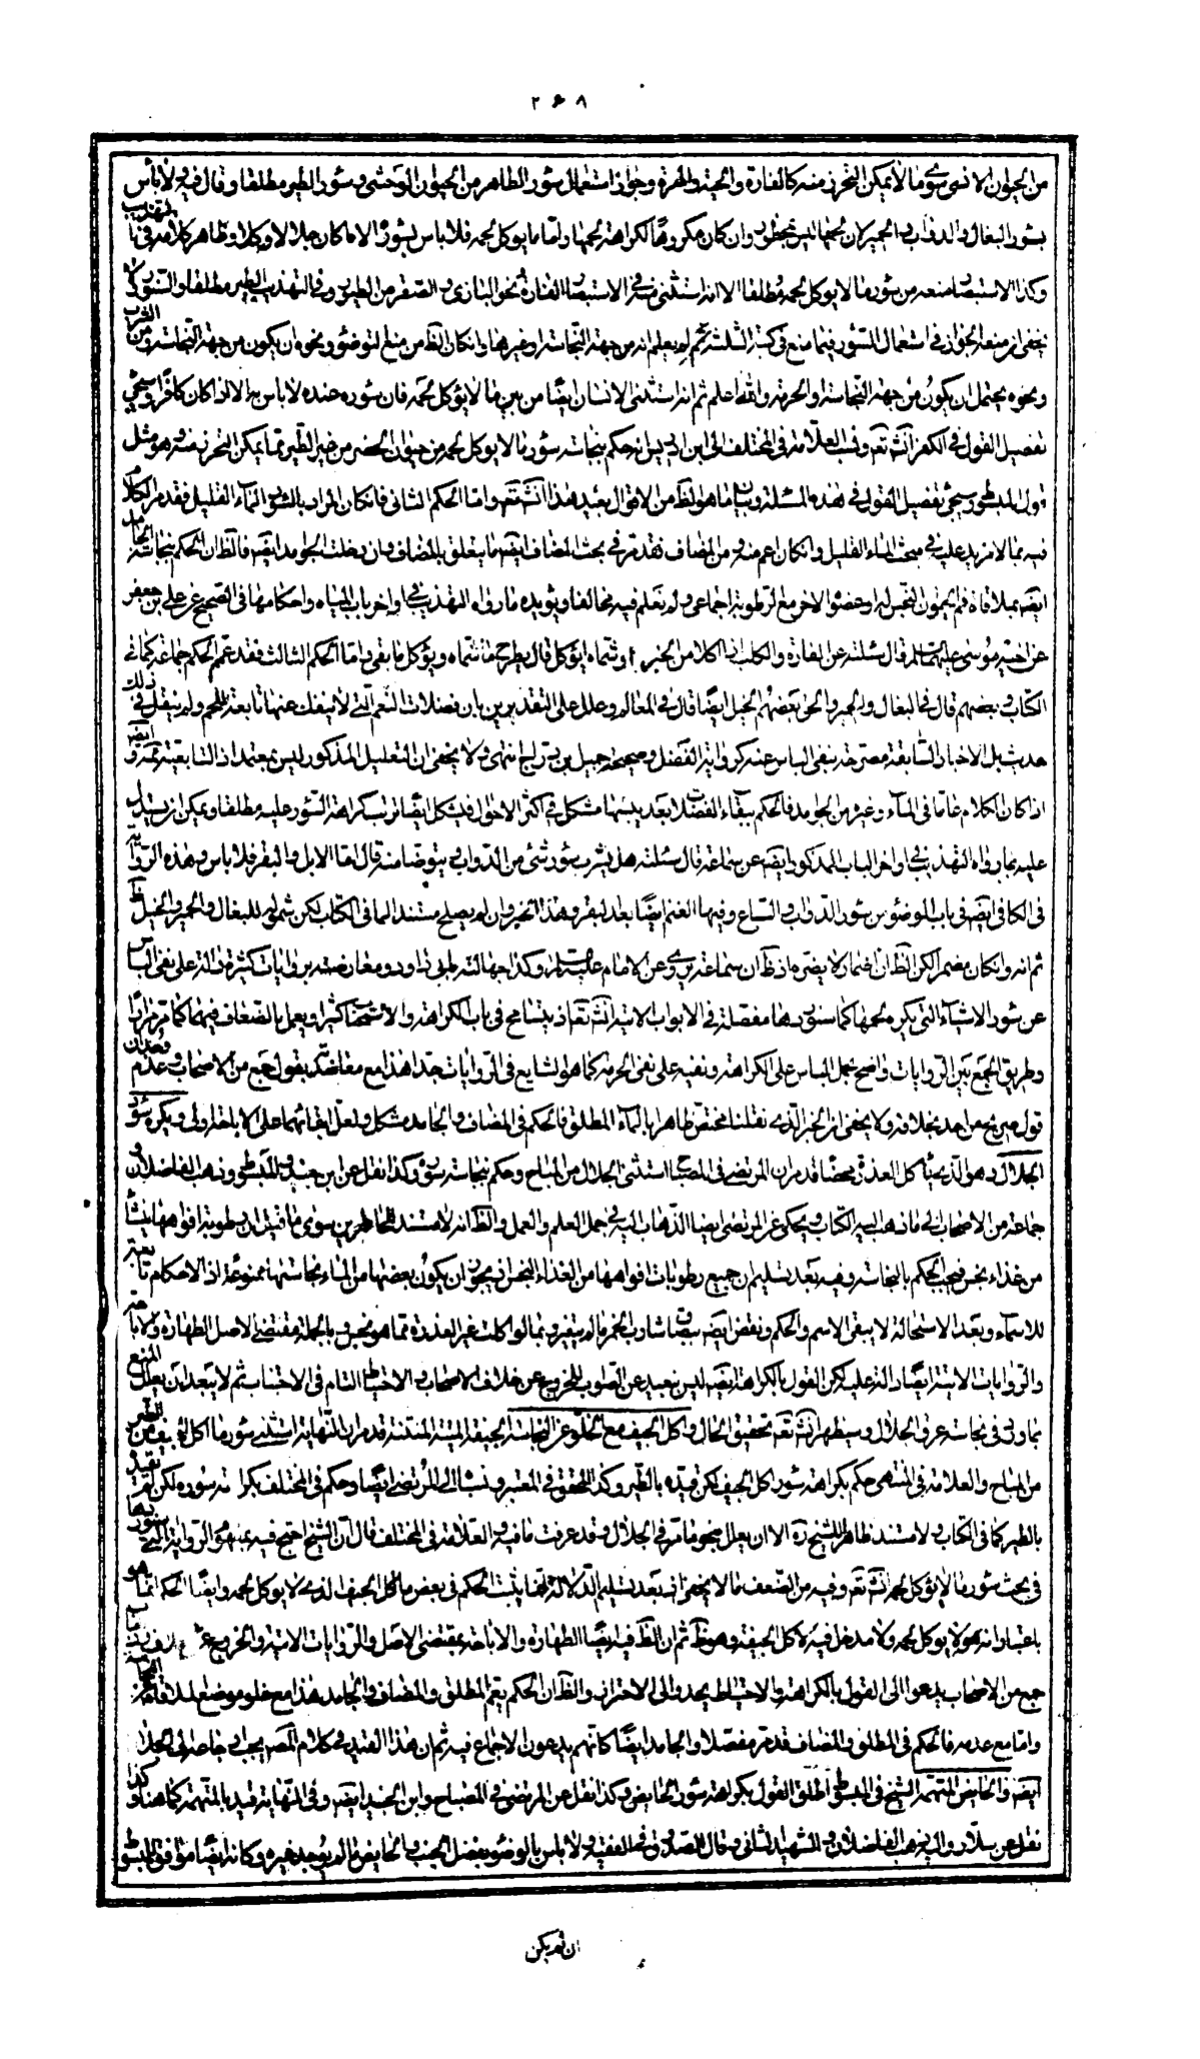 ٢۶٨
من الحيوان الانسى سوى ما لا يمكن التحرز منه كالفارة والحية والهرة وجواز استعمال سؤر الطاهر من الحيوان الوحشى وسؤر الطير مطلقا وقال فيه ولا باس
بسؤر البغال والدواب والحمير لان لحمها ليس بمحظور وان كان مكروها لكراهة لحمها واما ما يوكل لحمه فلا باس بسؤره الا ما كان جلالا وظاهر كلامه فى التهذيب
وكذا الاستبصار منعه من سؤر ما لا يوكل لحمه مطلقا الا انه استثنى منه فى الاستبصار الفارة ونحو البازى والصقر من الطيور وفى التهذيب الطير مطلقا والسنور ولا
يخفى ان منعه الجواز فى استعمال السؤر فيما منع فى كتبه الثلثة لم يعلم انه من جهة النجاسة او غيرها وان كان الظ من منع التوضؤ ونحوه ان يكون من جهة النجاسة ومن الشرب
ونحوه يحتمل ان يكون من جهة النجاسة والحرمة والله اعلم ثم انه استثنى الانسان ايضا من بين ما لا يؤكل لحمه فان سؤره عنده لا باس به الا اذا كان كافرا وسيجئ
تفصيل القول فى الكفر انش تعه ونسب العلامة فى المختلف الى ابن ادريس انه حكم بنجاسة سؤر ما لا يوكل لحمه من حيوان الحضر من غير الطير مما يمكن التحرز منه وهو مثل
قول المبسوط وسيجئ تفصيل القول فى هذه المسئلة وبيان ما هو الظ من الاقوال بعيد هذا انش تعه واما الحكم الثانى فان كان المراد بالسؤر الماء القليل فقد مر الكلام
فيه بما لا مزيد عليه فى مبحث الماء القليل وان كان اعم منه ومن المضاف فقد مر فى بحث المضاف ايضه ما يتعلق بالمضاف وان دخلت الجوامد ايضه فالظ ان الحكم بنجاسة الجامد
ايضه بملاقاة فم الحيوان النجس له او عضو الاخر مع الرطوبة اجماعى ولم نعلم فيه مخالفا ويؤيده ما رواه التهذيب فى اواخر باب المياه واحكامها فى الصحيح عن على بن جعفر
عن اخيه موسى عليهما السلام قال سئلته عن الفارة والكلب اذا اكلا من الخبز او شماه ايؤكل قال يطرح ما شماه ويؤكل ما بقى واما الحكم الثالث فقد عم الحكم جماعة كما فى
الكتاب وبعضهم قال فى البغال والحمير والحق بعضهم الخيل ايضا قال فى المعالم وعلل على التقديرين بان فضلات الفم التى لا ينفك عنها تابعة للحم ولم ينقل فى ذلك
حديث بل الاخبار السابقة مصرحة بنفى الباس عنه كرواية الفضل وصحيحة جميل بن دراج انتهى ولا يخفى ان التعليل المذكور ليس بمعتمد اذ التابعية ثم وايضه
اذا كان الكلام عاما فى الماء وغيره من الجوامد فالحكم ببقاء الفضلات بعد يبسها مشكل فى اكثر الاحوال فيشكل ايضا ترتب كراهة السؤر عليه مطلقا ويمكن ان يستدل
عليه بما رواه التهذيب فى اواخر الباب المذكور ايضه عن سماعة قال سئلته هل يشرب سؤر شئ من الدواب ويتوضا منه قال اما الابل والبقر فلا باس وهذه الرواية
فى الكافى ايضه فى باب الوضوء من سؤر الدواب والسباع وفيها الغنم ايضا بعد البقر وهذا الخبر وان لم يصلح مستندا لما فى الكتاب لكن شموله للبغال والحمير والخيل ظ
ثم انه وان كان مضمرا لكن الظ ان اضماره لا يضر اذ ظ ان سماعة يروى عن الامام عليه السلام وكذا جهالته بابى داود ومعارضته بروايات كثيرة دالة على نفى الباس
عن سؤر الاشياء التى يكره لحمها كما سنوردها مفصلة فى الابواب الاتية انش تعه اذ يتسامح فى باب الكراهة والاستحباب كثيرا ويعمل بالضعاف فيهما كما مر مرارا
وطريق الجمع بين الروايات واضح بحمل الباس على الكراهة ونفيه على نفى الحرمة كما هو الشايع فى الروايات جدا هذا مع معاضدته بقول جمع من الاصحاب وعدم وجدان
قول صريح من احد بخلافه ولا يخفى ان الخبر الذى نقلنا مختص ظاهرا بالماء المطلق فالحكم فى المضاف والجامد مشكل ولعل ابقائهما على الاباحة اولى ويكره سؤر
الجلال وهو الذى يأكل العذرة محضا قد مر ان المرتضى فى المصباح استثنى الجلال من المباح وحكم بنجاسة سؤره وكذا نقل عن ابن جنيد والمبسوط وذهب الفاضلان و
جماعة من الاصحاب الى ما ذهب اليه الكتاب ويحكى عن المرتضى ايضا الذهاب اليه فى جمل العلم والعمل والظ انه لا مستند للحاظرين سوى ما قيل ان رطوبة افواهها ينشأ
من غذاء نجس فيجب الحكم بالنجاسة وفيه بعد تسليم ان جميع رطوبات افواهها من الغذاء النجس اذ يجوز ان يكون بعضها من الماء نجاستها ممنوعة اذ الاحكام تابعة
للاسماء وبعد الاستحالة لا يبقى الاسم والحكم ونقض ايضه ببصاق شارب الخمر ما لم يتغير وبما لو اكلت غير العذرة مما هو نجس وبالجملة مقتضى الاصل الطهارة والاباحة
والروايات الاتية ايضا دالة عليه لكن القول بالكراهة ايضه ليس ببعيد عن الصوب للخروج عن خلاف الاصحاب والاحتياط التام فى الاجتناب ثم لا يبعد ان يعلل المنع
بما ورد فى نجاسة عرق الجلال وسيظهر انش تعه تحقيق الحال واكل الجيف مع الخلو عن النجاسة الجيفة الميتة المنتنة قد مر ان النهاية استثنى سؤر ما اكل الجيف من الطير
من المباح والعلامة فى المنتهى حكم بكراهة سؤر اكل الجيف لكن قيده بالطير وكذا المحقق فى المعتبر ونسبه الى المرتضى ايضا وحكم فى المختلف بكراهة سؤره لكن لم يقيده
بالطير كما فى الكتاب ولا مستند ظاهرا للشيخ ره الا ان يعلل بنحو ما مر فى الجلال وقد عرفت ما فيه والعلامة فى المختلف قال ان الشيخ احتج فيه بمفهوم الرواية التى سنوردها
فى بحث سؤر ما لا يؤكل لحمه انش تعه وفيه من الضعف ما لا يخفى اذ بعد تسليم الدلالة انما يثبت الحكم فى بعض ما اكل الجيف الذى لا يوكل لحمه وايضا الحكم انما هو
باعتبار انه مما لا يوكل لحمه ولا مدخل فيه لاكل الجيفة وهو ظ ثم ان الظ فيه ايضا الطهارة والاباحة بمقتضى الاصل والروايات الاتية والخروج عن
جمع من الاصحاب يدعوا الى القول بالكراهة والاحتياط يحدو الى الاحتراز والظ ان الحكم يعم المطلق والمضاف والجامد هذا مع خلو موضع الملاقاة عن النجاسة
واما مع عدمه فالحكم فى المطلق والمضاف قد مر مفصلا والجامد ايضا كانهم يدعون الاجماع فيه ثم ان هذا القيد فى كلام المص يجب ارجاعه الى الجلال
ايضه والحائض المتهمة الشيخ فى المبسوط اطلق القول بكراهة سؤر الحائض وكذا نقل عن المرتضى فى المصباح وابن الجنيد ايضه وفى النهاية قيد بالمتهمة كما هنا وكذا
نقل عن سلار واليه ذهب الفاضلان والشهيد الثانى وقال الصدوق فى الفقيه ولا باس بالوضوء بفضل الجنب والحائض ما لم يوجد غيره وكانه ايضا موافق للمبسوط
ان لم يكن